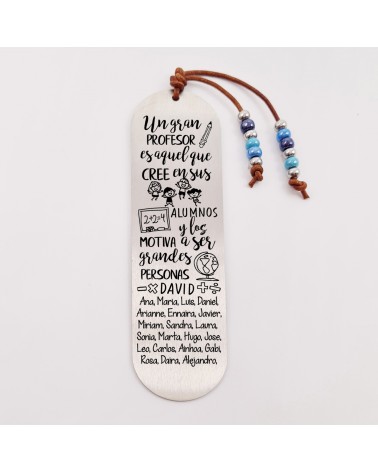 Un gran
PROFESOR
es aquel que
CREE en sus
2+2=4 ALUMNOS
y los
MOTIVA a ser
grandes
PERSONAS
-× DAVID +÷
Ana, María, Luis, Daniel,
Arianne, Ennaira, Javier,
Miriam, Sandra, Laura,
Sonia, Marta, Hugo, Jose,
Leo, Carlos, Ainhoa, Gabi,
Rosa, Daira, Alejandro,